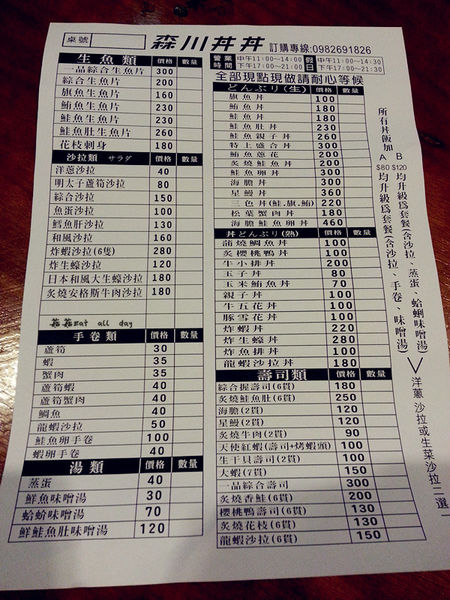 桌號
森川丼丼 訂購專線:0982691826
營業時間 中午11:00～14:00 下午17:00～21:00 假日 中午11:00～14:30 下午17:00～21:30
全部現點現做請耐心等候
生魚類 價格 數量
一品綜合生魚片 300
綜合生魚片 200
旗魚生魚片 160
鮪魚生魚片 230
鮭魚生魚片 230
鮭魚肚生魚片 260
花枝刺身 180
沙拉類 サラダ 價格 數量
洋蔥沙拉 40
明太子蘆筍沙拉 80
綜合沙拉 150
魚蛋沙拉 100
鱈魚肝沙拉 130
和風沙拉 160
炸蝦沙拉(6隻) 280
炸生蠔沙拉 120
日本和風大生蠔沙拉 180
炙燒安格斯牛肉沙拉 180
Eat all day
手卷類 價格 數量
蘆筍 30
蝦 35
蟹肉 35
蘆筍蝦 40
蘆筍蟹肉 40
鯛魚 40
龍蝦沙拉 50
鮭魚卵手卷 100
蝦卵手卷 40
湯類 價格 數量
蒸蛋 40
鮮魚味噌湯 30
蛤蜊味噌湯 70
鮮鮭魚肚味噌湯 120
どんぶり(生) 價格 數量
旗魚丼 100
鮪魚丼 180
鮭魚丼 180
鮭魚肚丼 230
鮭魚親子丼 260
特上盛合丼 300
鮪魚蔥花 200
炙燒鮭魚丼 200
鮭魚卵丼 300
海膽丼 300
星鰻丼 360
三色丼(鮭.旗.鮪) 220
松葉蟹肉丼 180
海膽鮭魚卵丼 460
丼どんぶり(熟) 價格 數量
蒲燒鯛魚丼 100
炙櫻桃鴨丼 100
牛小排丼 200
玉子丼 80
玉米鮪魚丼 70
親子丼 100
牛五花丼 100
豚雪花丼 100
炸蝦丼 220
炸生蠔丼 280
炸魚排丼 100
龍蝦沙拉丼 180
壽司類 價格 數量
綜合握壽司(6貫) 180
炙燒鮭魚肚(6貫) 250
海膽(2貫) 120
星鰻(2貫) 120
炙燒牛肉(2貫) 90
天使紅蝦(壽司+烤蝦頭) 100
生干貝壽司(2貫) 100
大蝦(7貫) 150
一品綜合壽司 300
炙燒香鮭(6貫) 200
櫻桃鴨壽司(6貫) 130
炙燒花枝(6貫) 130
龍蝦沙拉(6貫) 150
所有丼飯加
A $80 均升級為套餐(含沙拉、手卷、味噌湯)
B $120 均升級為套餐(含沙拉、蒸蛋、蛤蜊味噌湯)
洋蔥沙拉或生菜沙拉二選一